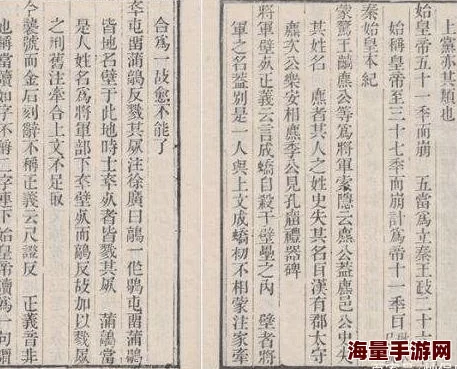 上黨亦其類也
始皇帝五十一年而崩　五當爲立秦王政二十六
始稱皇帝至三十七年而崩計爲帝十一年
秦始皇本紀
蒙驁王齮麃公等爲將軍索隱云麃公蓋麃邑公史失
其姓名　麃者其人之姓史失其名耳漢有郡太守
麃次公樂安相麃季公見孔廟禮器碑
將軍壁死正義云言成蟜自殺于壁壘之內　壁者將
軍之名蓋別是一人與上文成蟜初不相蒙注家牽
合爲一故愈不能了
卒屯留蒲鶮反戮其尸注徐廣曰鶮一作鶡屯留蒲鶮
皆地名壁于此地時士卒死者皆戮其尸　蒲鶮當
是人姓名爲將軍部下卒壁死而鶮反故加以戮尸
之刑舊注牽合上文不足取
今襲號而金石刻辭不稱正義云尺證反　正義音非
也稱當讀如字不稱二字連下始皇帝讀爲一句謂
海量手游网